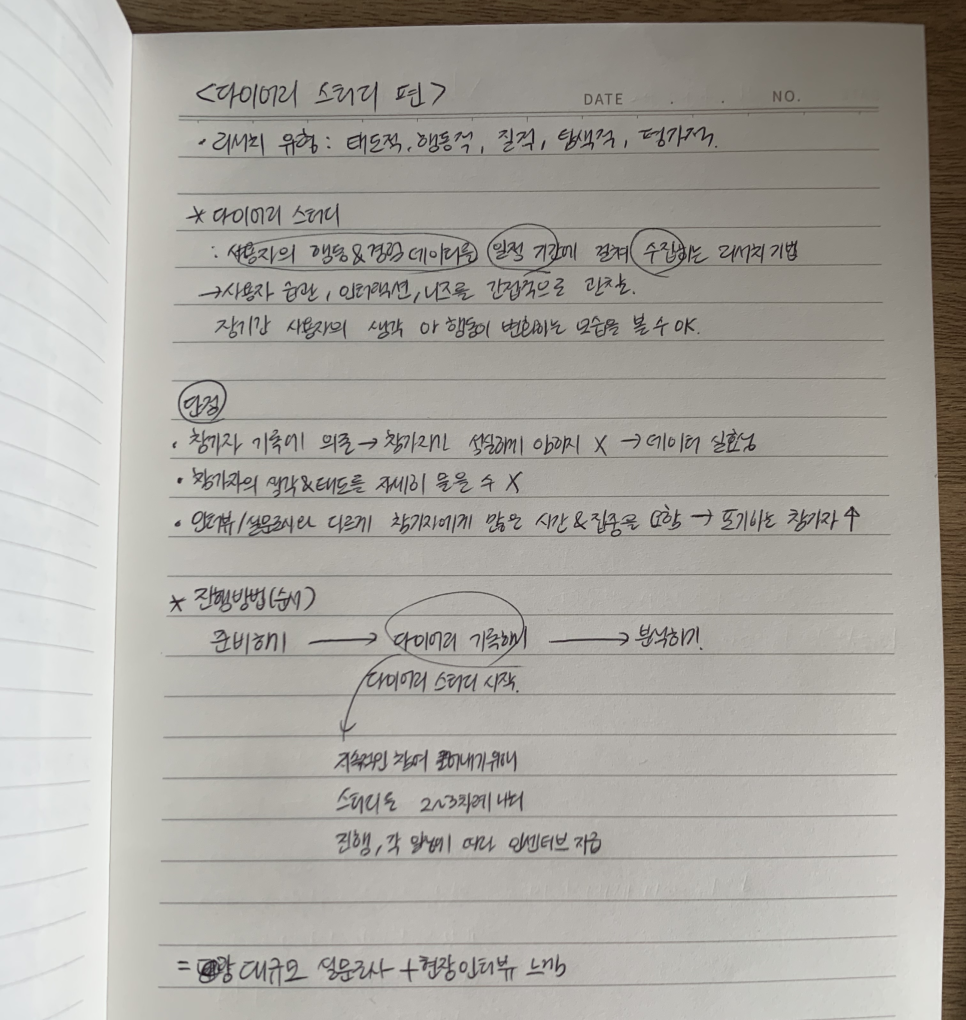 <다이어리 스터디 편>
DATE . . NO.
• 리서치 유형 : 태도적, 행동적, 질적, 탐색적, 평가적.
* 다이어리 스터디
: 사용자의 행동&경험 데이터를 일정 기간에 걸쳐 수집하는 리서치 기법
→ 사용자 습관, 인터랙션, 니즈를 간접적으로 관찰.
장기간 사용자의 생각 이 행동이 변화하는 모습을 볼 수 OK.
단점
• 참가자 기록에 의존 → 참가자가 성실하게 안하지 X → 데이터 실효성
• 참가자의 생각&태도를 자세히 물을 수 X
• 인터뷰/설문조사와 다르게 참가자에게 많은 시간&집중을 요함 → 포기하는 참가자 ↑
* 진행방법(순서)
준비하기 → 다이어리 기록하기 → 분석하기.
다이어리 스터디 시작.
지속적인 참여 끌어내기위해
스터디를 2~3차례 나눠
진행, 각 완성에 따라 인센티브 지급
= 대규모 설문조사 + 현장인터뷰 느낌